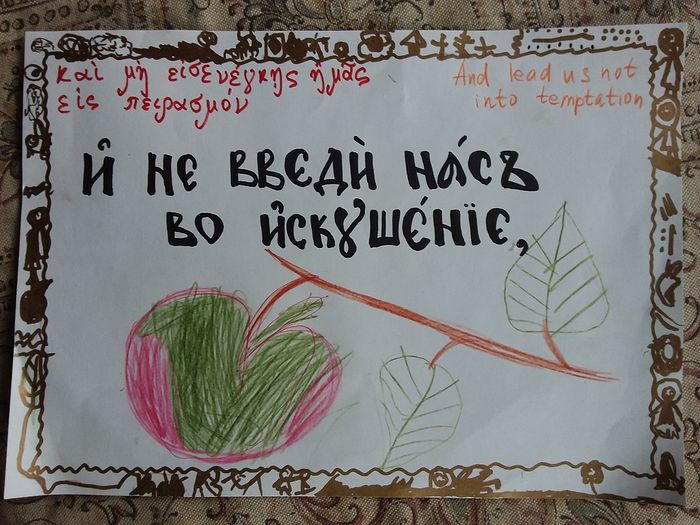 καὶ μὴ εἰσενέγκῃς ἡμᾶς
εἰς πειρασμόν
And lead us not
into temptation
И҆ не введѝ на́съ
во и҆скꙋше́нїе,